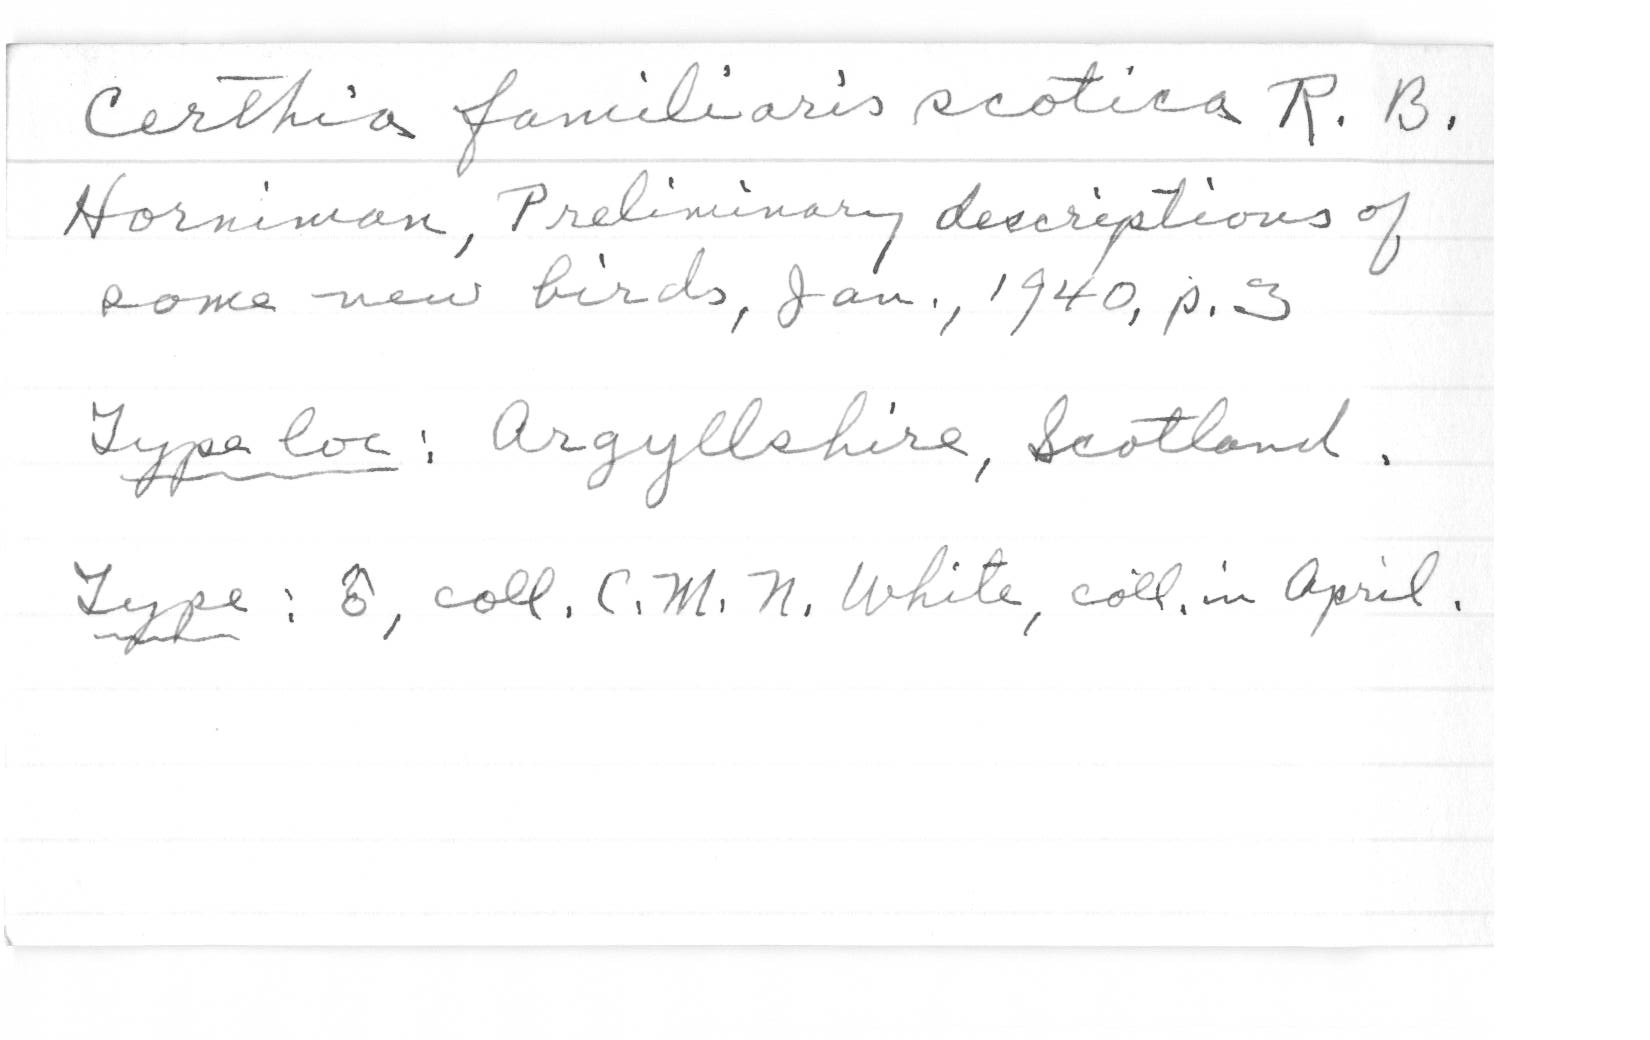 Certhia familiaris scotica R. B.
Horniman, Preliminary descriptions of
some new birds, Jan., 1940, p. 3
Type loc: Argyllshire, Scotland.
Type: ♂, coll. C. M. N. White, coll. in April.